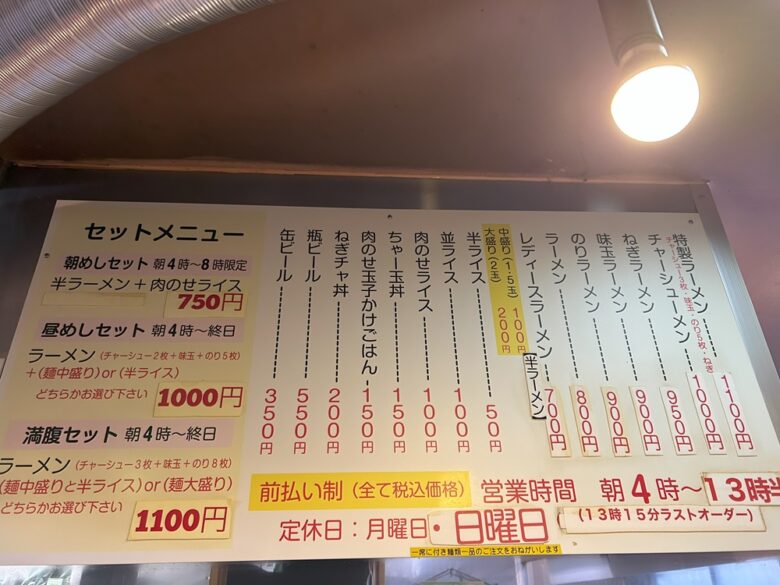 セットメニュー
朝めしセット 朝4時〜8時限定
半ラーメン+肉のせライス
750円
昼めしセット 朝4時〜終日
ラーメン(チャーシュー2枚+味玉+のり5枚)
+(麺中盛り)or(半ライス)
どちらかお選び下さい
1000円
満腹セット 朝4時〜終日
ラーメン(チャーシュー3枚+味玉+のり8枚)
(麺中盛りと半ライス)or(麺大盛り)
どちらかお選び下さい
1100円
特製ラーメン 1100円
チャーシュー3枚・味玉・のり5枚・ねぎ
チャーシューメン 1000円
ねぎラーメン 950円
味玉ラーメン 900円
のりラーメン 900円
ラーメン 800円
レディースラーメン(半ラーメン) 700円
中盛り(1.5玉) 100円
大盛り(2玉) 200円
半ライス 50円
並ライス 100円
肉のせライス 100円
ちゃー玉丼 150円
肉のせ玉子かけごはん 150円
ねぎチャ丼 200円
瓶ビール 550円
缶ビール 350円
前払い制(全て税込価格) 営業時間 朝4時〜13時半
(13時15分ラストオーダー)
定休日:月曜日・日曜日
一席に付き麺類一品のご注文をおねがいします